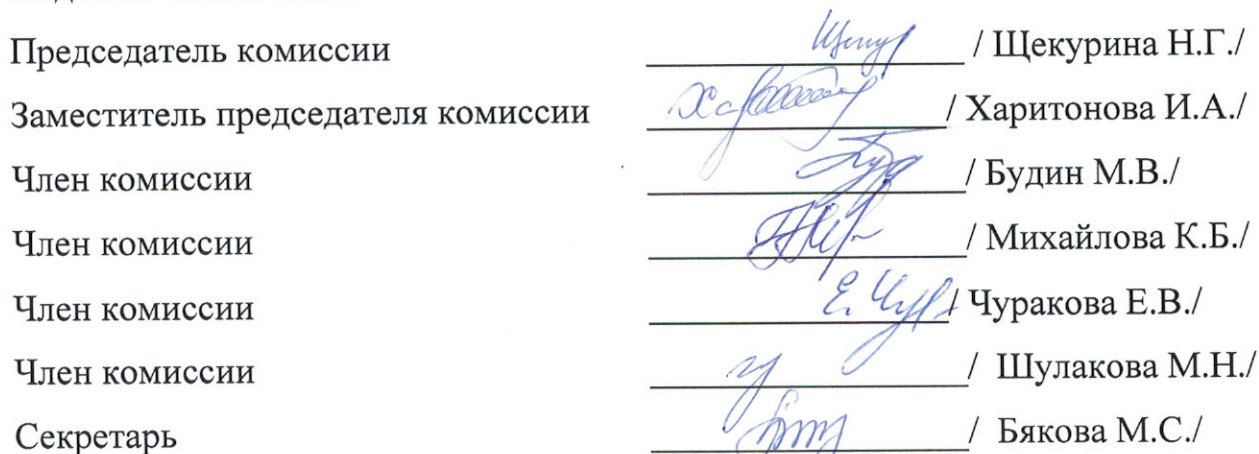 Председатель комиссии / Щекурина Н.Г./
Заместитель председателя комиссии / Харитонова И.А./
Член комиссии / Будин М.В./
Член комиссии / Михайлова К.Б./
Член комиссии / Чуракова Е.В./
Член комиссии / Шулакова М.Н./
Секретарь / Бякова М.С./